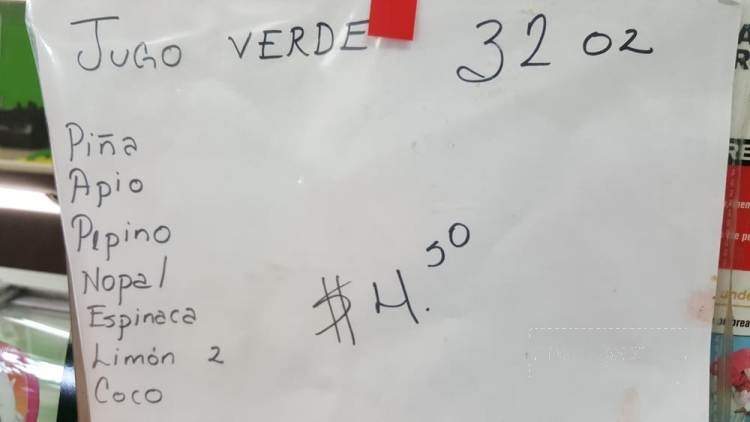 JUGO VERDE 32 oz
Piña
Apio
Pepino
Nopal
Espinaca
Limón 2
Coco
$4.50